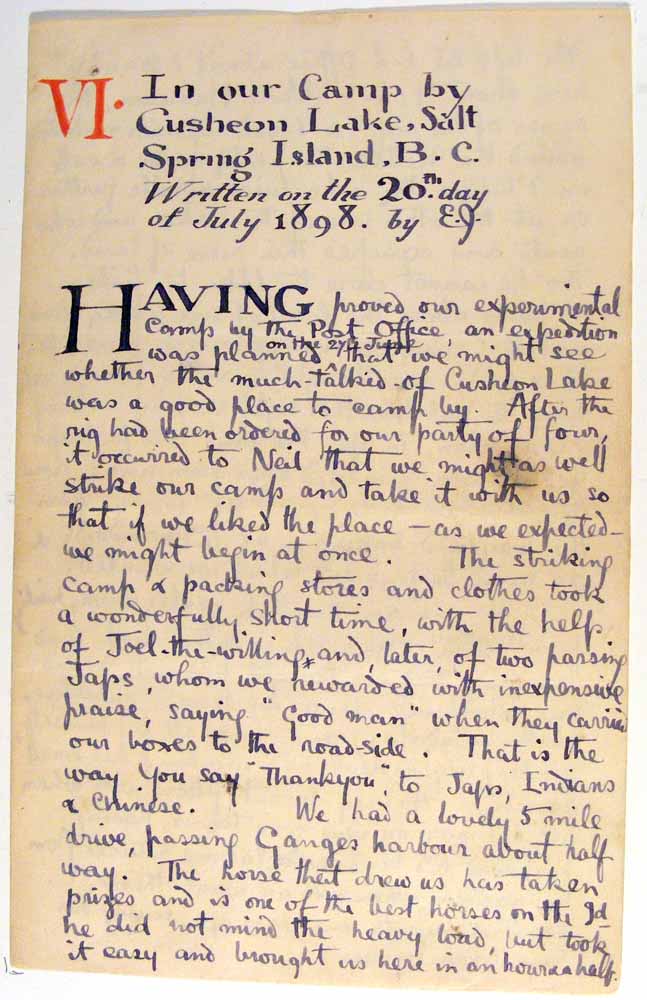 VI. In our Camp by
Cusheon Lake, Salt
Spring Island, B. C.
Written on the 20th. day
of July 1898. by E.J.
HAVING proved our experimental
Camp by the Post Office, an expedition
on the 27th June
was planned that we might see
whether the much-talked-of Cusheon Lake
was a good place to camp by. After the
rig had been ordered for our party of four,
it occurred to Neil that we might as well
strike our camp and take it with us so
that if we liked the place – as we expected –
we might begin at once. The striking
camp & packing stores and clothes took
a wonderfully short time, with the help
of Joel-the-willing,* and, later, of two passing
Japs, whom we rewarded with inexpensive
praise, saying "Good man" when they carried
our boxes to the road-side. That is the
way you say "Thankyou", to Japs, Indians
& Chinese. We had a lovely 5 mile
drive, passing Ganges harbour about half
way. The horse that drew us has taken
prizes and is one of the best horses on the Id
he did not mind the heavy load, but took
it easy and brought us here in an hour & a half.